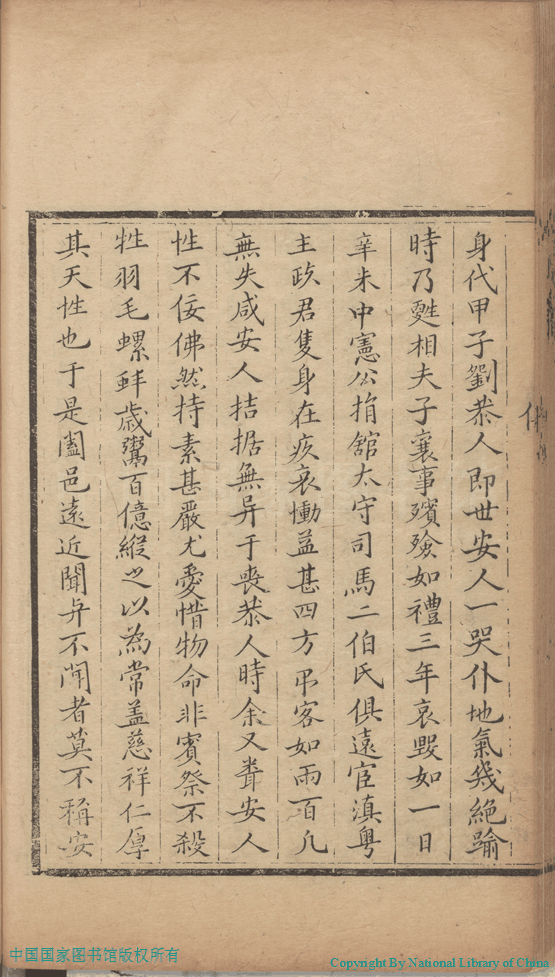 身代甲子劉恭人即世安人一哭仆地氣幾絕踰
時乃甦相夫子襄事殯殮如禮三年哀毀如一日
辛未中憲公捐館太守司馬二伯氏俱遠宦滇粤
主政君隻身在疚哀慟益甚四方弔客如雨百凡
無失咸安人拮据無异于喪恭人時余又耆安人
性不佞佛然持素甚嚴尤愛惜物命非賓祭不殺
牲羽毛螺蚌歲鬻百億縱之以為常盖慈祥仁厚
其天性也于是闔邑遠近聞与不聞者莫不稱安
中国国家图书馆版权所有
Copyright By National Library of China